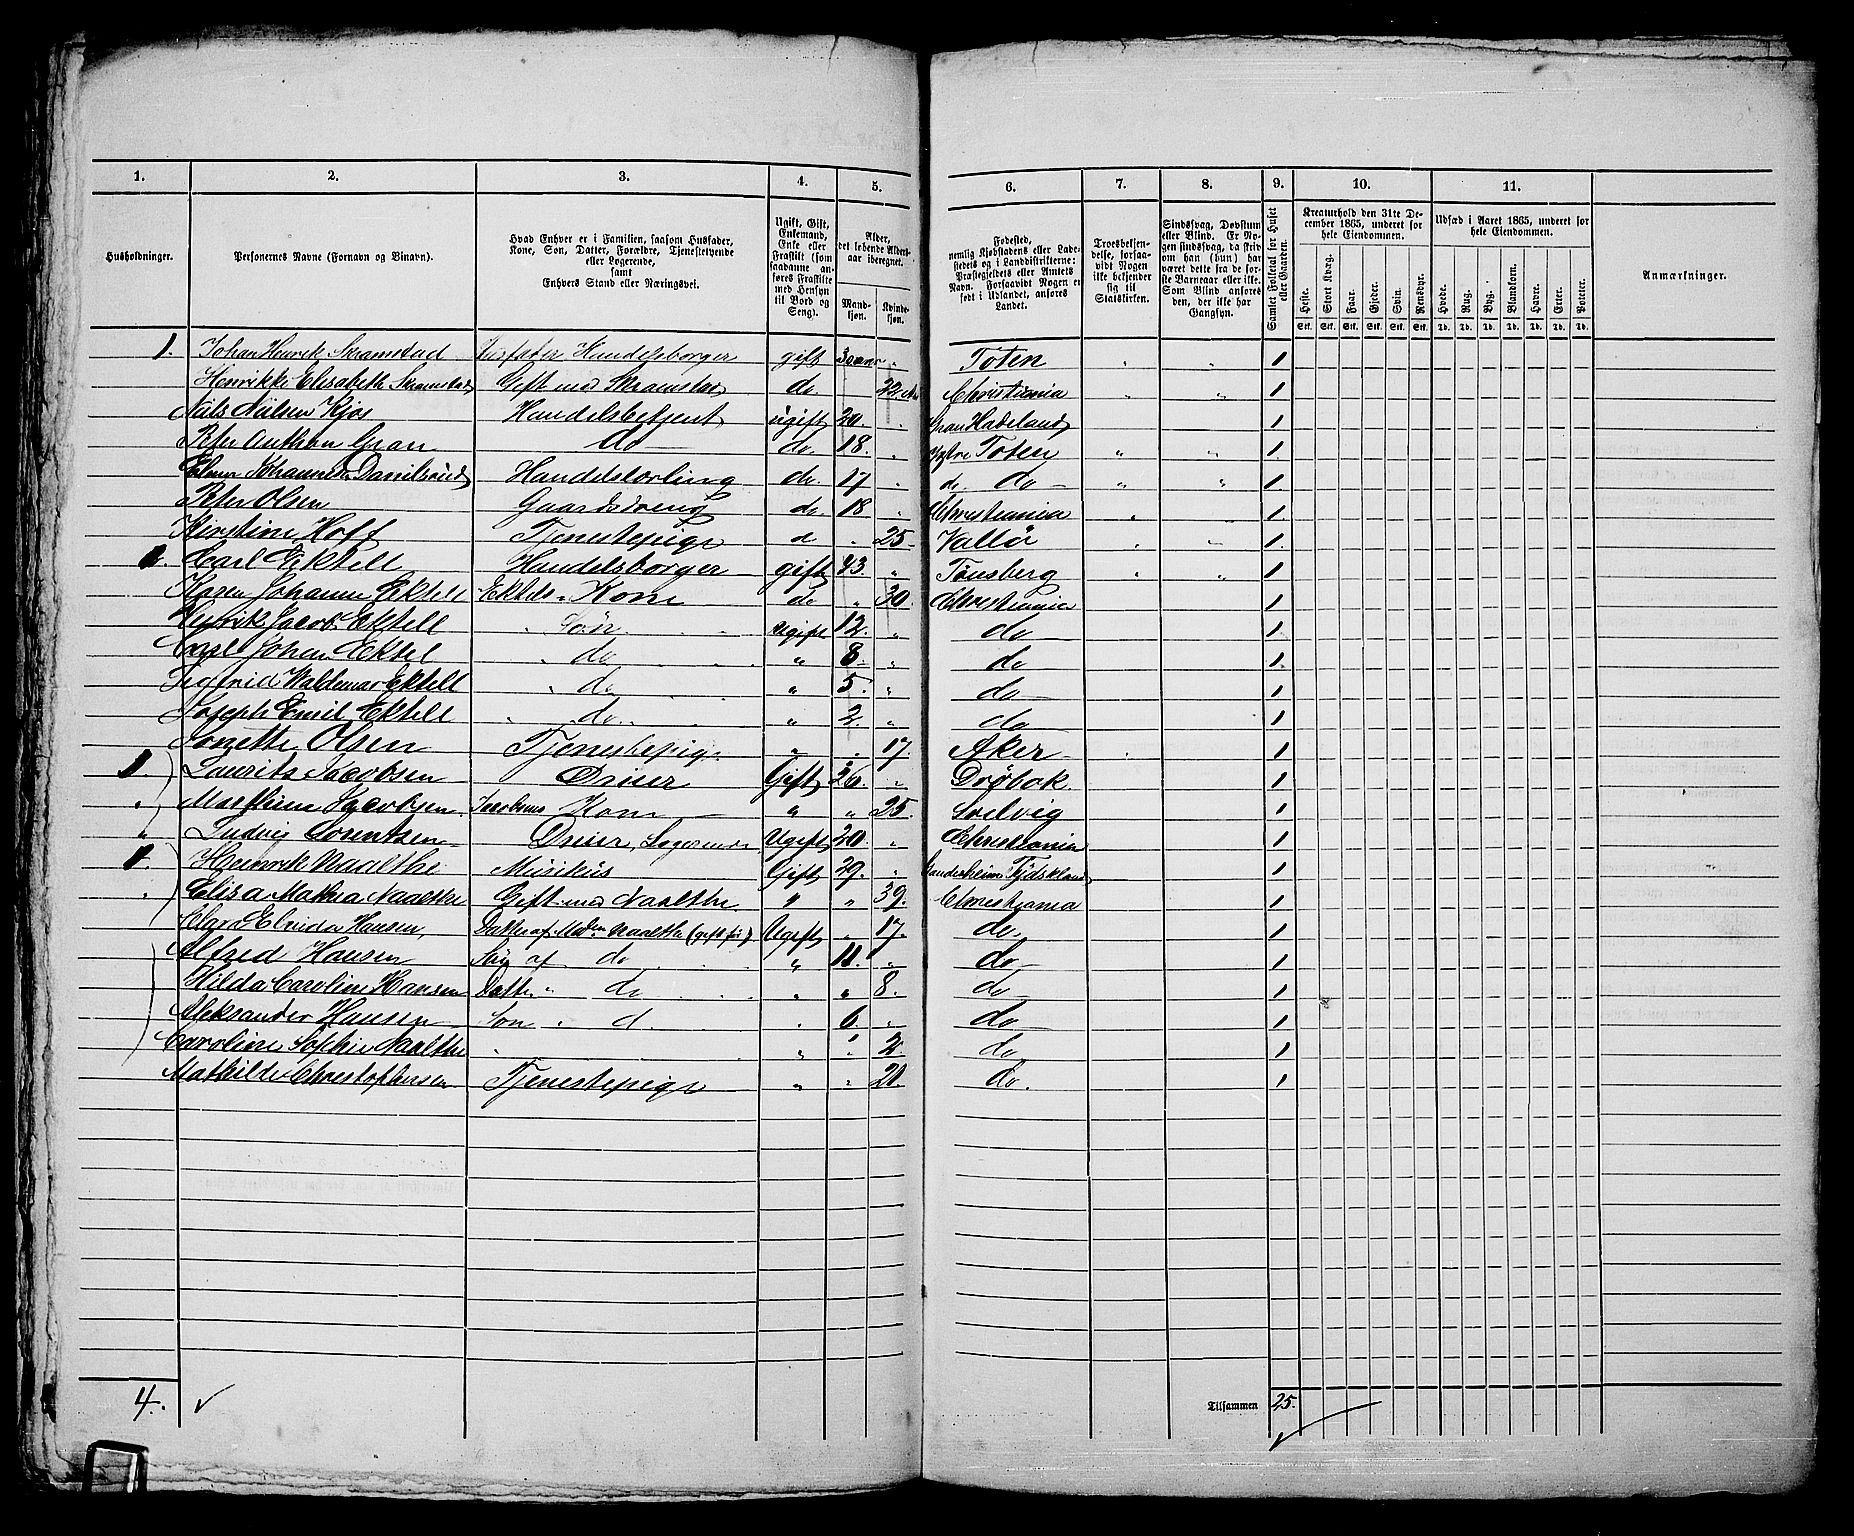 1. 2. 3. 4. 5. 6. 7. 8. 9. 10. 11.
Husholdninger.
Personernes Navne (Fornavn og Binavn).
Hvad Enhver er i Familien, saasom Husfader,
Kone, Søn, Datter, Forældre, Tjenestetyende
eller Logerende,
samt
Enhvers Stand eller Næringsvei.
Ugift, Gift,
Enkemand,
Enke eller
Fraskilt (som
saadanne an-
føres Fraskilte
med Hensyn
til Bord og
Seng).
Alder,
det løbende Alders-
aar iberegnet.
Mand-
kjøn.
Kvinde-
kjøn.
Fødested,
nemlig Kjøbstadens eller Lade-
stedets og i Landdistrikterne:
Præstegjeldets eller Amtets
Navn. Forsaavidt Nogen er
født i Udlandet, anføres
Landet.
Troesbekjen-
delse, forsaa-
vidt Nogen
ikke bekjender
sig til
Statskirken.
Sindssvag, Døvstum
eller Blind. Er No-
gen sindssvag, da skrives
om han (hun) har
været dette fra de før-
ste Barneaar eller ikke.
Som Blind anføres
den, der ikke har
Gangsyn.
Samlet Folketal for Huset
eller Gaarden.
Kreaturhold den 31te De-
cember 1865, underet for
hele Eiendommen.
Heste. Stort Kvæg. Faar. Gjeder. Svin. Rensdyr.
Stk. Stk. Stk. Stk. Stk. Stk.
Udsæd i Aaret 1865, underet for
hele Eiendommen.
Hvede. Rug. Byg. Blandkorn. Havre. Erter. Poteter.
Td. Td. Td. Td. Td. Td. Td.
Anmærkninger.
1. Johan Henrik Skramstad Husfader Handelsborger gift 30 aar " Toten " " 1
Henrikke Elisabeth Skramstad Gift med Skramstad do. 22 Christiania " " 1
Nils Nilsen Kjos Handelsbetjent ugift 20. " Gran Hadeland 1
Peter Anthon Gran do do. 18. " Østre Toten " " 1
Johannes Danielsrud Handelslærling do. 17 " do. do " " 1.
Peter Olsen Gaardsdreng do. 18 " Christiania " " 1.
Kirstine Hoff Tjenestepige d " 25 Vallø " " 1.
1. Carl Ektell Handelsborger gift 43. " Tønsberg " " 1
Karen Johanne Ektell Ektels Kone do " 30. Christiania 1
Henrik Jacob Ektell " Søn Ugift 12. " do 1
Carl Johan Ektel " do " 8. " do 1.
Sigfrid Valdemar Ektell " do " 5. " do 1
Joseph Emil Ektell " do. " 2. " do 1
Olsen Tjenestepige " " 17. Aker 1
1. Laurits Jacobsen Driver Gift 26. " Drøbak 1
" Marthine Jacobsen Jacobsens Kone " " 25. Solvig 1
" Ludvig Lorentsen Driver, Logerende Ugift 20. " Christiania 1
1. Henrik Naalthe Musikus Gift 29. " Tydskland 1
" Elisa Mathea Naalthe Gift med Naalthe " " 39. Christiania 1
Clara Elvida Hansen, Datter af Mad. Naalthe (gift før) Ugift " 17. do. 1
Alfred Hansen Søn af do " 11. " do 1
Hilda Caroline Hansen Datter " do " " 8. do 1
Aleksander Hansen Søn " d. " 6. " do 1
Caroline Sophie Naalthe " " " 2. do 1
Mathilde Christophersen Tjenestepige " " 21. do. 1
4.
Tilsammen 25.